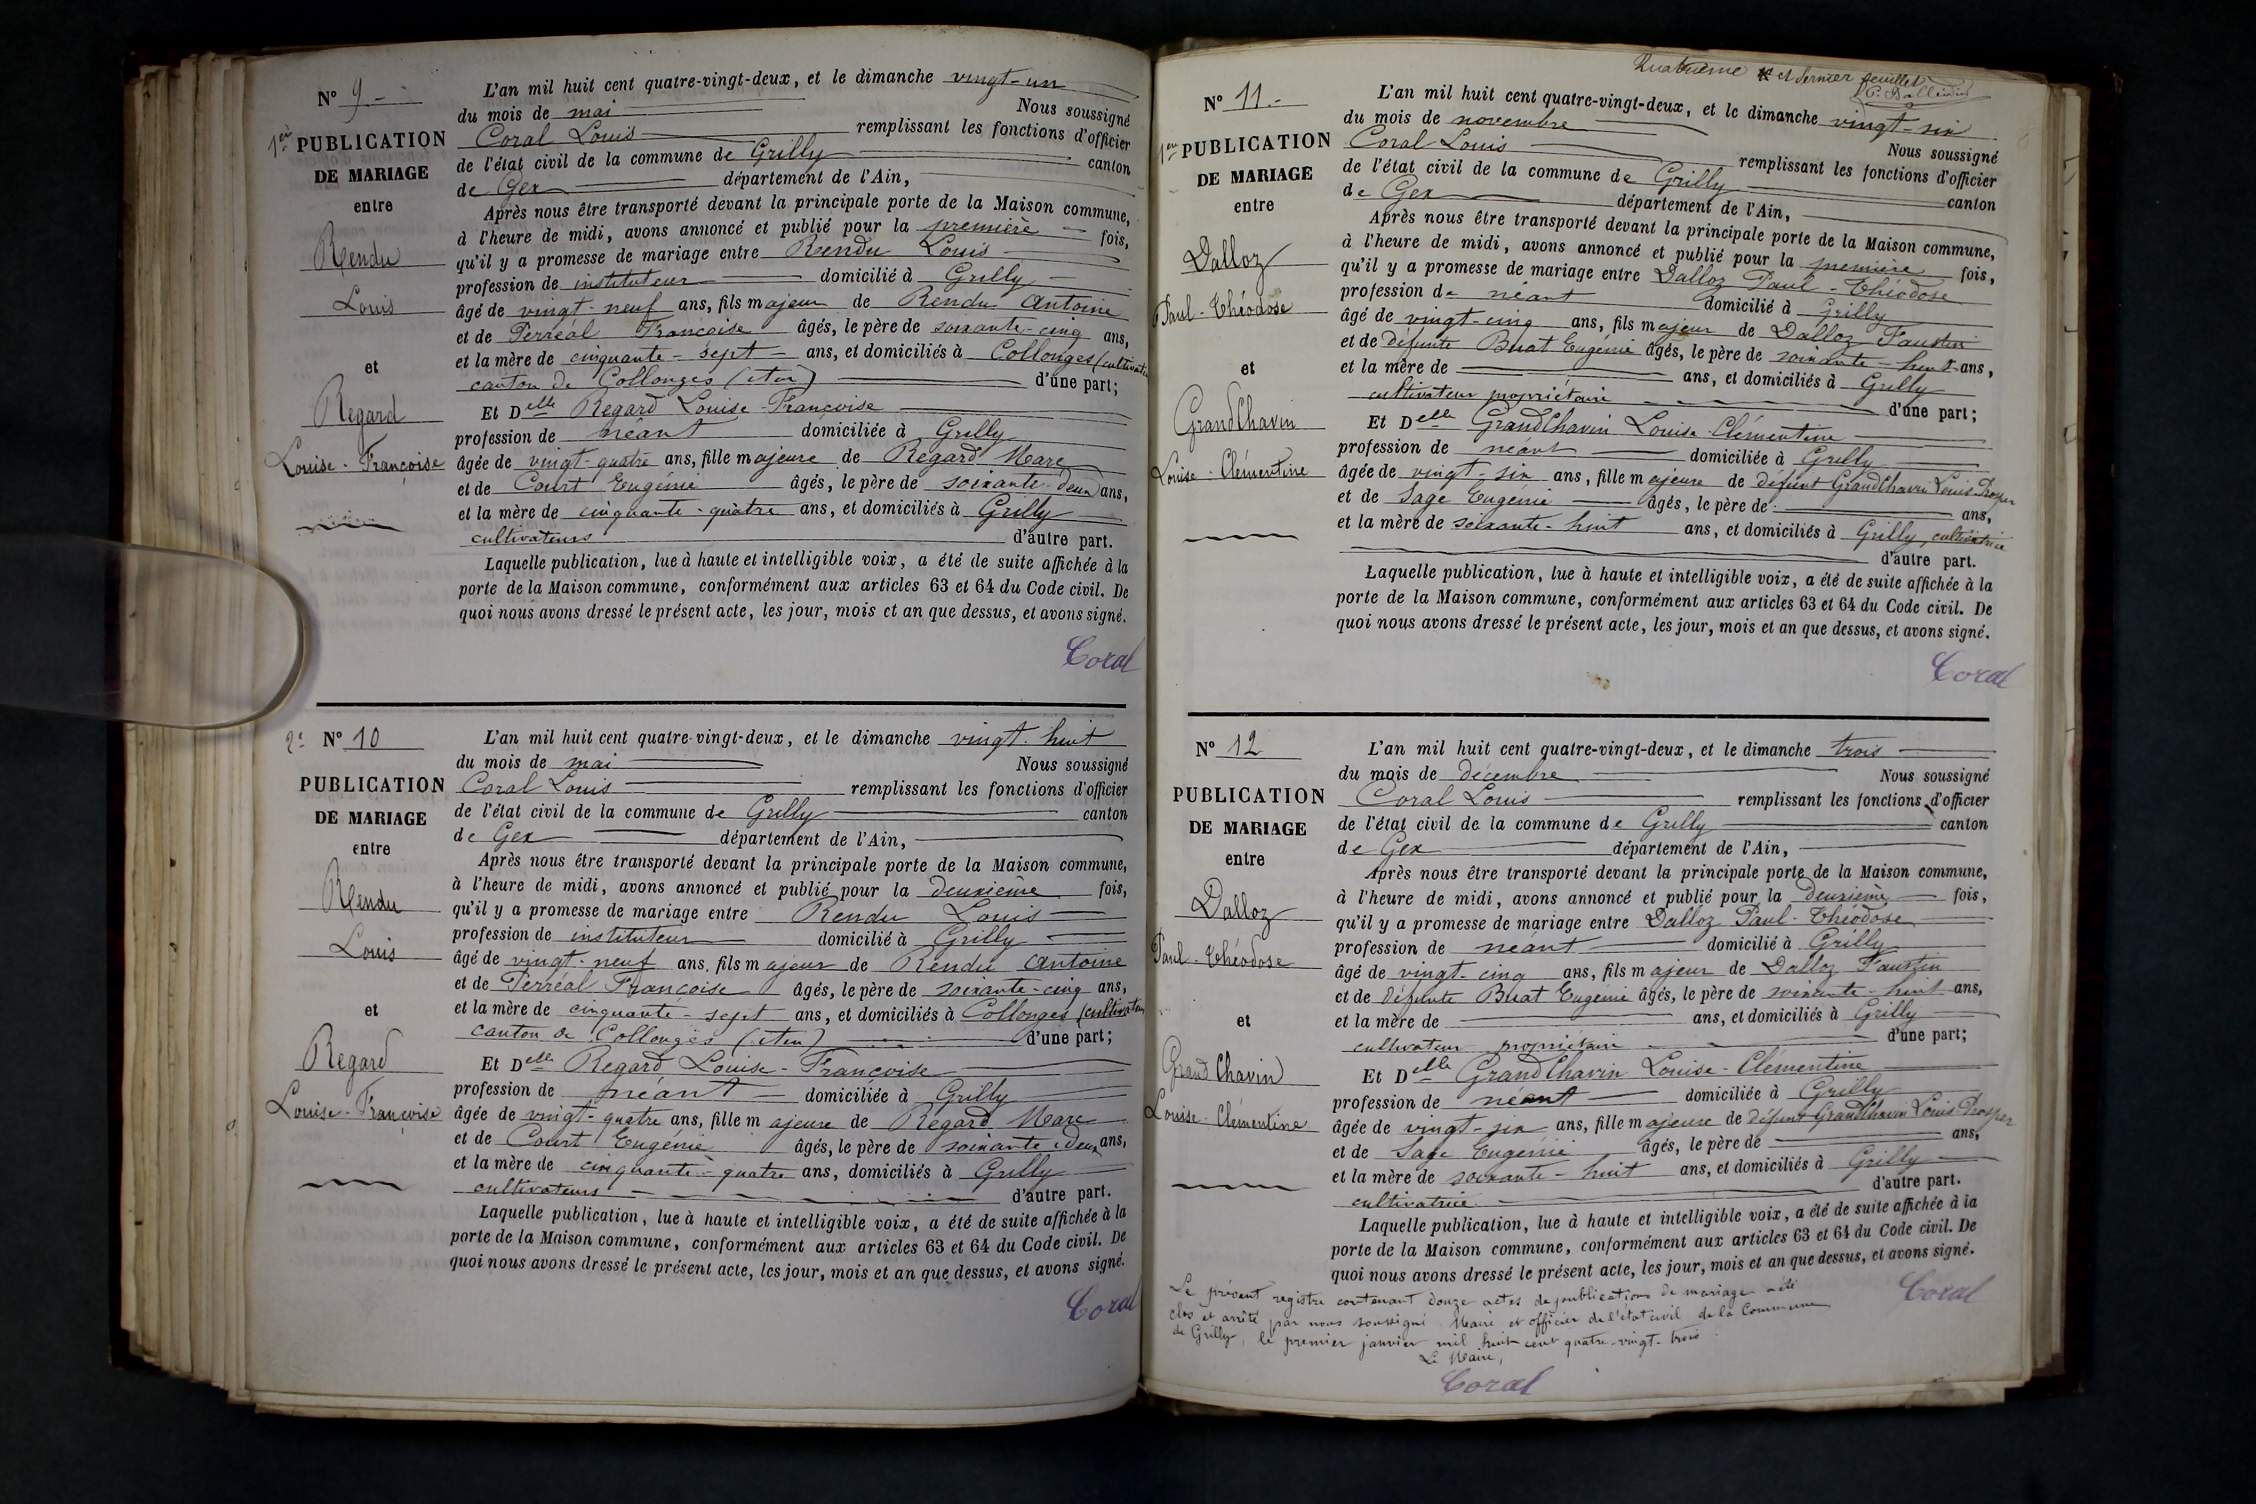 N° 9
1ère PUBLICATION
DE MARIAGE
entre
Rendu
Louis
et
Regard
Louise-Françoise
L'an mil huit cent quatre-vingt-deux, et le dimanche vingt-un
du mois de mai Nous soussigné
Coral Louis remplissant les fonctions d'officier
de l'état civil de la commune de Grilly canton
de Gex département de l'Ain,
Après nous être transporté devant la principale porte de la Maison commune,
à l'heure de midi, avons annoncé et publié pour la première fois,
qu'il y a promesse de mariage entre Rendu Louis
profession de instituteur domicilié à Grilly
âgé de vingt-neuf ans, fils majeur de Rendu Antoine
et de Perréal Françoise âgés, le père de soixante-cinq ans,
et la mère de cinquante-sept ans, et domiciliés à Collonges (cultivateurs
canton de Collonges (Ain) d'une part;
Et Delle Regard Louise-Françoise
profession de néant domiciliée à Grilly
âgée de vingt-quatre ans, fille majeure de Regard Marc
et de Court Eugénie âgés, le père de soixante-deux ans,
et la mère de cinquante-quatre ans, et domiciliés à Grilly
cultivateurs d'autre part.
Laquelle publication, lue à haute et intelligible voix, a été de suite affichée à la
porte de la Maison commune, conformément aux articles 63 et 64 du Code civil. De
quoi nous avons dressé le présent acte, les jour, mois et an que dessus, et avons signé.
Coral
2e N° 10
PUBLICATION
DE MARIAGE
entre
Rendu
Louis
et
Regard
Louise-Françoise
L'an mil huit cent quatre-vingt-deux, et le dimanche vingt-huit
du mois de mai Nous soussigné
Coral Louis remplissant les fonctions d'officier
de l'état civil de la commune de Grilly canton
de Gex département de l'Ain,
Après nous être transporté devant la principale porte de la Maison commune,
à l'heure de midi, avons annoncé et publié pour la deuxième fois,
qu'il y a promesse de mariage entre Rendu Louis
profession de instituteur domicilié à Grilly
âgé de vingt-neuf ans, fils majeur de Rendu Antoine
et de Perréal Françoise âgés, le père de soixante-cinq ans,
et la mère de cinquante-sept ans, et domiciliés à Collonges (cultivateurs
canton de Collonges (Ain) d'une part;
Et Delle Regard Louise-Françoise
profession de néant domiciliée à Grilly
âgée de vingt-quatre ans, fille majeure de Regard Marc
et de Court Eugénie âgés, le père de soixante-deux ans,
et la mère de cinquante-quatre ans, domiciliés à Grilly
cultivateurs d'autre part.
Laquelle publication, lue à haute et intelligible voix, a été de suite affichée à la
porte de la Maison commune, conformément aux articles 63 et 64 du Code civil. De
quoi nous avons dressé le présent acte, les jour, mois et an que dessus, et avons signé.
Coral
Quatrième et dernier feuillet
N° 11
1ère PUBLICATION
DE MARIAGE
entre
Dalloz
Paul-Théodose
et
GrandChavin
Louise-Clémentine
L'an mil huit cent quatre-vingt-deux, et le dimanche vingt-six
du mois de novembre Nous soussigné
Coral Louis remplissant les fonctions d'officier
de l'état civil de la commune de Grilly canton
de Gex département de l'Ain,
Après nous être transporté devant la principale porte de la Maison commune,
à l'heure de midi, avons annoncé et publié pour la première fois,
qu'il y a promesse de mariage entre Dalloz Paul-Théodose
profession de néant domicilié à Grilly
âgé de vingt-cinq ans, fils majeur de Dalloz Faustin
et de défunte Buat Eugénie âgés, le père de soixante-huit ans,
et la mère de ans, et domiciliés à Grilly
cultivateur propriétaire d'une part;
Et Delle GrandChavin Louise-Clémentine
profession de néant domiciliée à Grilly
âgée de vingt-six ans, fille majeure de défunt GrandChavin Louis Prosper
et de Sage Eugénie âgés, le père de ans,
et la mère de soixante-huit ans, et domiciliés à Grilly, cultivatrice
d'autre part.
Laquelle publication, lue à haute et intelligible voix, a été de suite affichée à la
porte de la Maison commune, conformément aux articles 63 et 64 du Code civil. De
quoi nous avons dressé le présent acte, les jour, mois et an que dessus, et avons signé.
Coral
N° 12
PUBLICATION
DE MARIAGE
entre
Dalloz
Paul-Théodose
et
GrandChavin
Louise-Clémentine
L'an mil huit cent quatre-vingt-deux, et le dimanche trois
du mois de décembre Nous soussigné
Coral Louis remplissant les fonctions d'officier
de l'état civil de la commune de Grilly canton
de Gex département de l'Ain,
Après nous être transporté devant la principale porte de la Maison commune,
à l'heure de midi, avons annoncé et publié pour la deuxième fois,
qu'il y a promesse de mariage entre Dalloz Paul-Théodose
profession de néant domicilié à Grilly
âgé de vingt-cinq ans, fils majeur de Dalloz Faustin
et de défunte Buat Eugénie âgés, le père de soixante-huit ans,
et la mère de ans, et domiciliés à Grilly
cultivateur propriétaire d'une part;
Et Delle GrandChavin Louise-Clémentine
profession de néant domiciliée à Grilly
âgée de vingt-six ans, fille majeure de défunt GrandChavin Louis Prosper
et de Sage Eugénie âgés, le père de ans,
et la mère de soixante-huit ans, et domiciliés à Grilly
cultivatrice d'autre part.
Laquelle publication, lue à haute et intelligible voix, a été de suite affichée à la
porte de la Maison commune, conformément aux articles 63 et 64 du Code civil. De
quoi nous avons dressé le présent acte, les jour, mois et an que dessus, et avons signé.
Coral
Le présent registre contenant douze actes de publications de mariage a été
clos et arrêté par nous soussigné Maire et officier de l'état civil de la Commune
de Grilly, le premier janvier mil huit cent quatre-vingt-trois.
Le Maire,
Coral